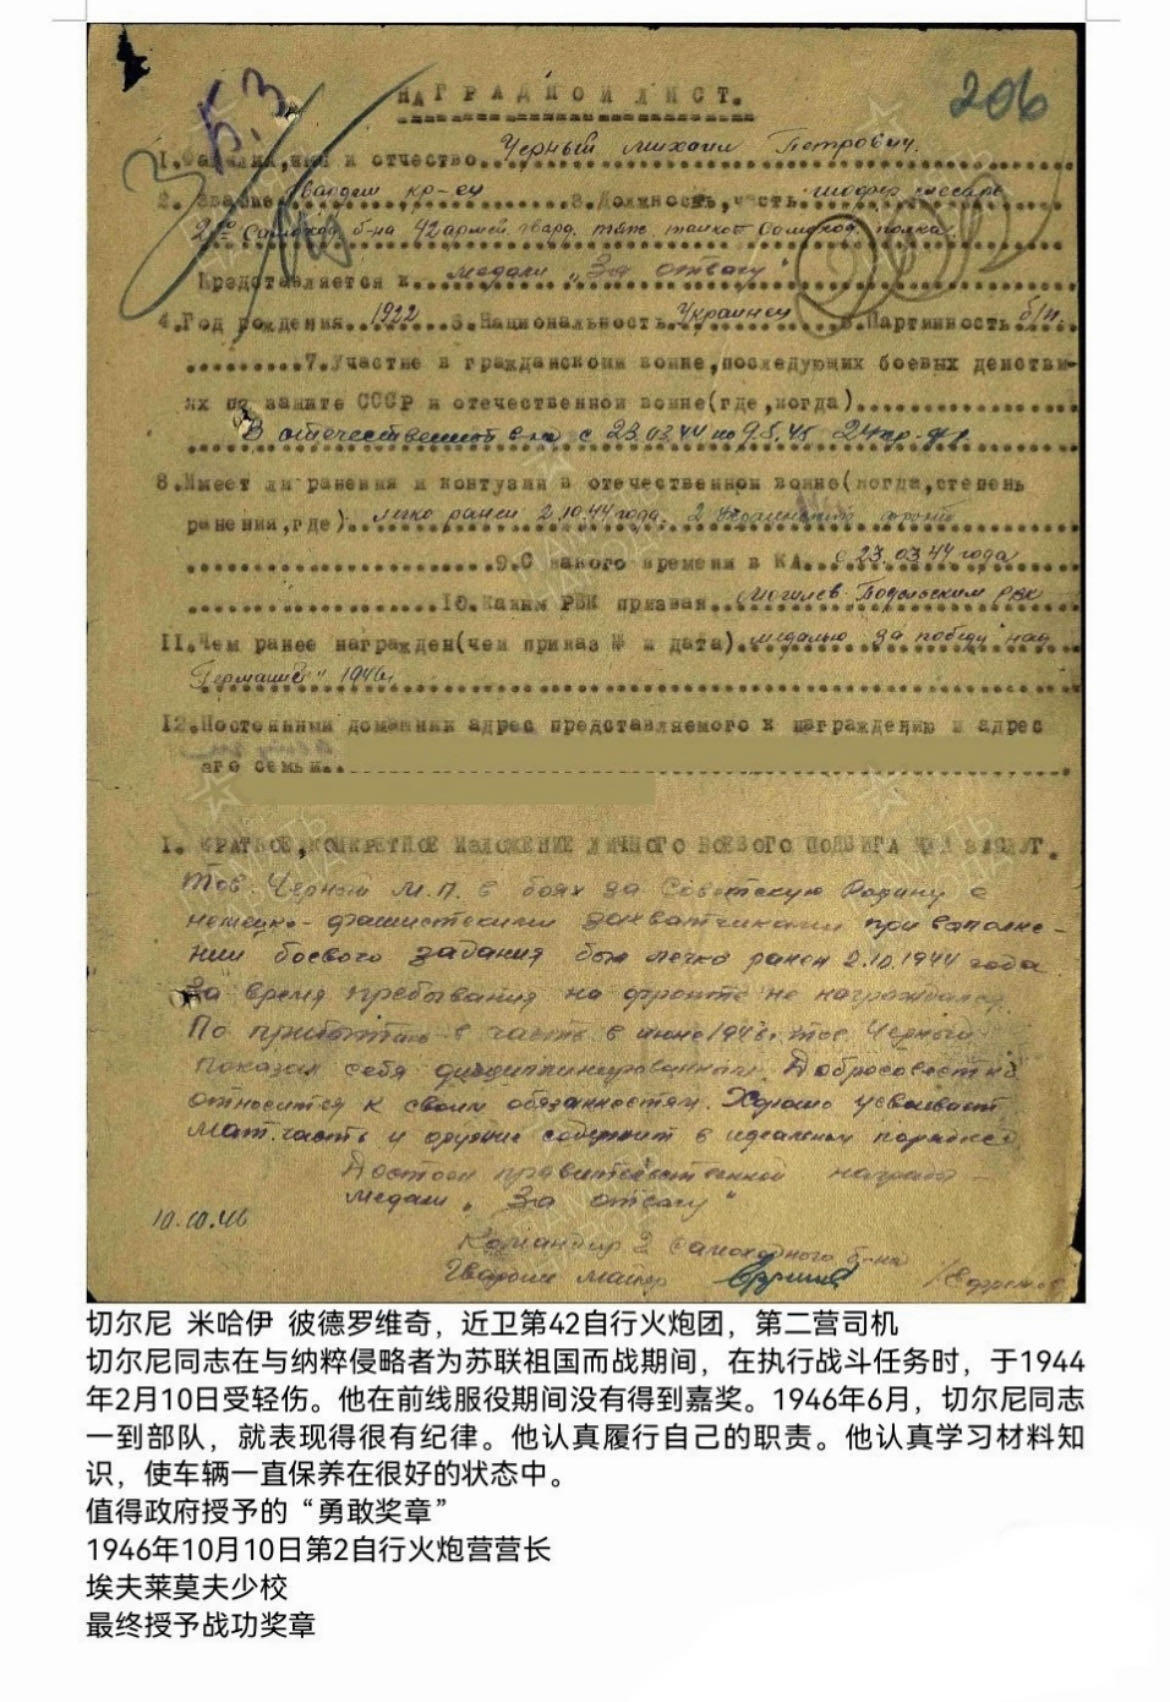 Б.З
206
НАГРАДНОЙ ЛИСТ.
1. Фамилия, имя и отчество. Черный Михаил Петрович.
2. Звание гвардеец кр-ец 3. Должность, часть шофер слесарь
2го Самоход. б-на 42 армей. гвард. тяж. танко Самоход. полка.
Представляется к медали „За отвагу"
4. Год рождения 1922 5. Национальность Украинец 6. Партийность б/п.
7. Участие в гражданской войне, последующих боевых действи-
ях по защите СССР и отечественной войне (где, когда)
В отечественной с 23.03.44 по 9.5.45 2 Укр. ф.
8. Имеет ли ранения и контузии в отечественной войне (когда, степень
ранения, где) легко ранен 2.10.44 года. 2 Украинский фронт
9. С какого времени в КА с 23.03.44 года
10. Каким РВК призван Могилев-Подольским РВК
11. Чем ранее награжден (чем приказ № и дата) медалью „За победу над
Германией" 1946г.
12. Постоянный домашний адрес представляемого к награждению и адрес
его семьи
ПАМЯТЬ НАРОДА
I. КРАТКОЕ, КОНКРЕТНОЕ ИЗЛОЖЕНИЕ ЛИЧНОГО БОЕВОГО ПОДВИГА ИЛИ ЗАСЛУГ.
Тов. Черный М.П. в боях за Советскую Родину с
немецко-фашистскими захватчиками при выполне-
нии боевого задания был легко ранен 2.10.1944 года.
За время пребывания на фронте не награждался.
По прибытию в часть в июне 1946г. тов. Черный
показал себя дисциплинированным. Добросовестно
относится к своим обязанностям. Хорошо усваивает
мат. часть и оружие содержит в идеальном порядке.
Достоин правительственной награды -
медали „За отвагу"
10.10.46
Командир 2 Самоходного б-на
Гвардии майор /Ефремов
切尔尼 米哈伊 彼德罗维奇，近卫第42自行火炮团，第二营司机
切尔尼同志在与纳粹侵略者为苏联祖国而战期间，在执行战斗任务时，于1944
年2月10日受轻伤。他在前线服役期间没有得到嘉奖。1946年6月，切尔尼同志
一到部队，就表现得很有纪律。他认真履行自己的职责。他认真学习材料知
识，使车辆一直保养在很好的状态中。
值得政府授予的“勇敢奖章”
1946年10月10日第2自行火炮营营长
埃夫莱莫夫少校
最终授予战功奖章